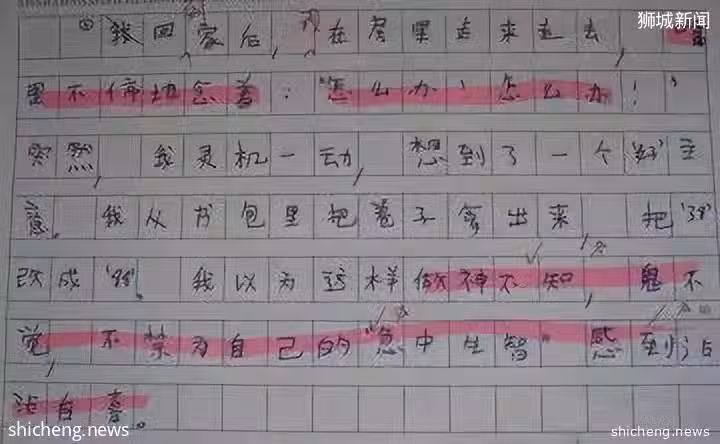 狮城新闻
我回家后，我在房里走来走去，嘴
里不停地念着：“怎么办！怎么办！”
突然，我灵机一动，想到了一个‘好’主
意。我从书包里把卷子拿出来，把‘38’
改成‘88’。我以为这样做神不知，鬼不
觉，不禁为自己的“急中生智”感到沾
沾自喜。
shicheng.news
shicheng.news